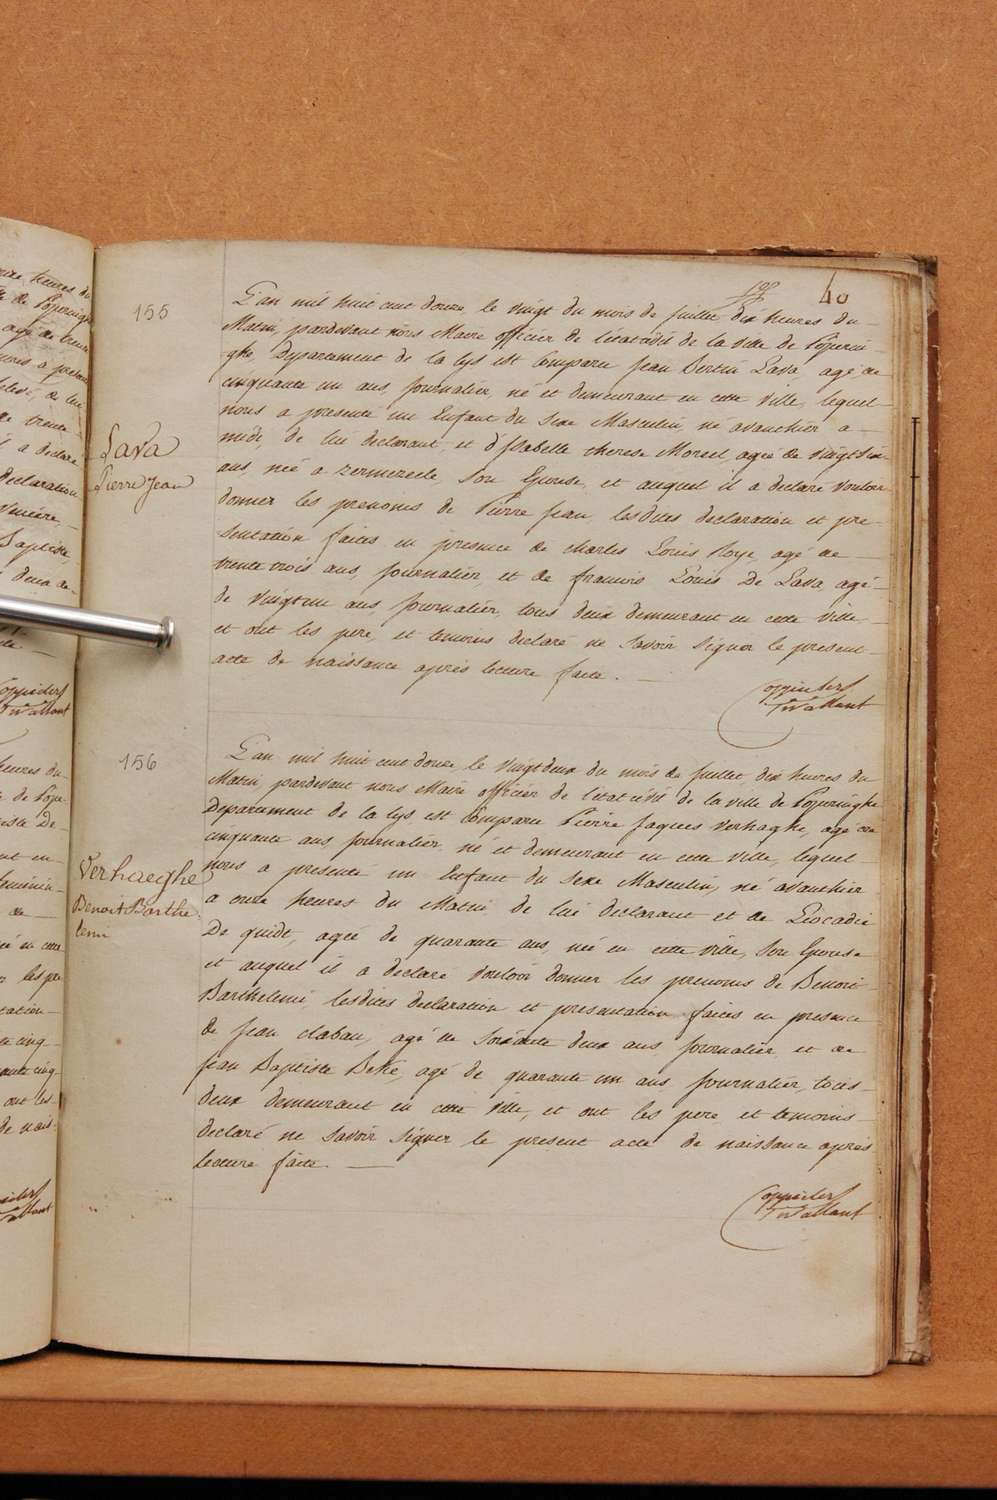 40
155
Lava
Pierre Jean
L'an mil huit cent douze, le vingt du mois de juillet dix heures du
Matin, pardevant nous Maire officier de l'état civil de la ville de Poperin-
ghe, Departement de la Lys est Comparu Jean Bertin Lava agé de
cinquante un ans, journalier, né et demeurant en cette ville, lequel
nous a presenté un Enfant du Sexe Masculin, né avanthier a
midi, de lui declarant, et d'Isabelle therese Moreel, agée de vingt six
ans, née a Zermezeele, Son Epouse, et auquel il a declaré vouloir
donner les prenoms de Pierre Jean, lesdites declaration et pre-
sentation faites en presence de Charles Louis Roye, agé de
trente trois ans, journalier, et de francois Louis De Lava, agé
de vingt un ans, journalier, tous deux demeurant en cette ville,
et ont les pere, et temoins declaré ne Savoir Signer le present
acte de naissance aprés lecture faite.
156
Verhaeghe
Benoit Barthe
lemi
L'an mil huit cent douze, le vingt deux du mois de juillet dix heures du
Matin pardevant nous Maire officier de l'état civil de la ville de Poperinghe
Departement de la Lys est Comparu Pierre Jaques Verhaghe, agé de
cinquante ans journalier, né et demeurant en cette ville, lequel
nous a presenté un Enfant du Sexe Masculin, né avanthier
a onze heures du Matin, de lui declarant et de Leocadie
De quidt, agée de quarante ans, née en cette ville, Son Epouse
et auquel il a declaré vouloir donner les prenoms de Benoit
Barthelemi, lesdites declaration et presentation faites en presence
de Jean Clabau, agé de Soixante deux ans journalier, et de
Jean Baptiste Beke, agé de quarante un ans journalier, tous
deux demeurant en cette ville, et ont les pere et temoins
declaré ne Savoir Signer le present acte de naissance aprés
lecture faite.